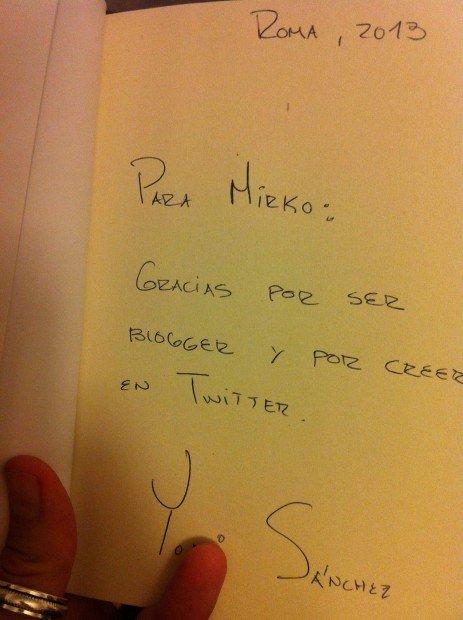 ROMA, 2013
PARA MIRKO:
GRACIAS POR SER
BLOGGER Y POR CREER
EN TWITTER.
SÁNCHEZ